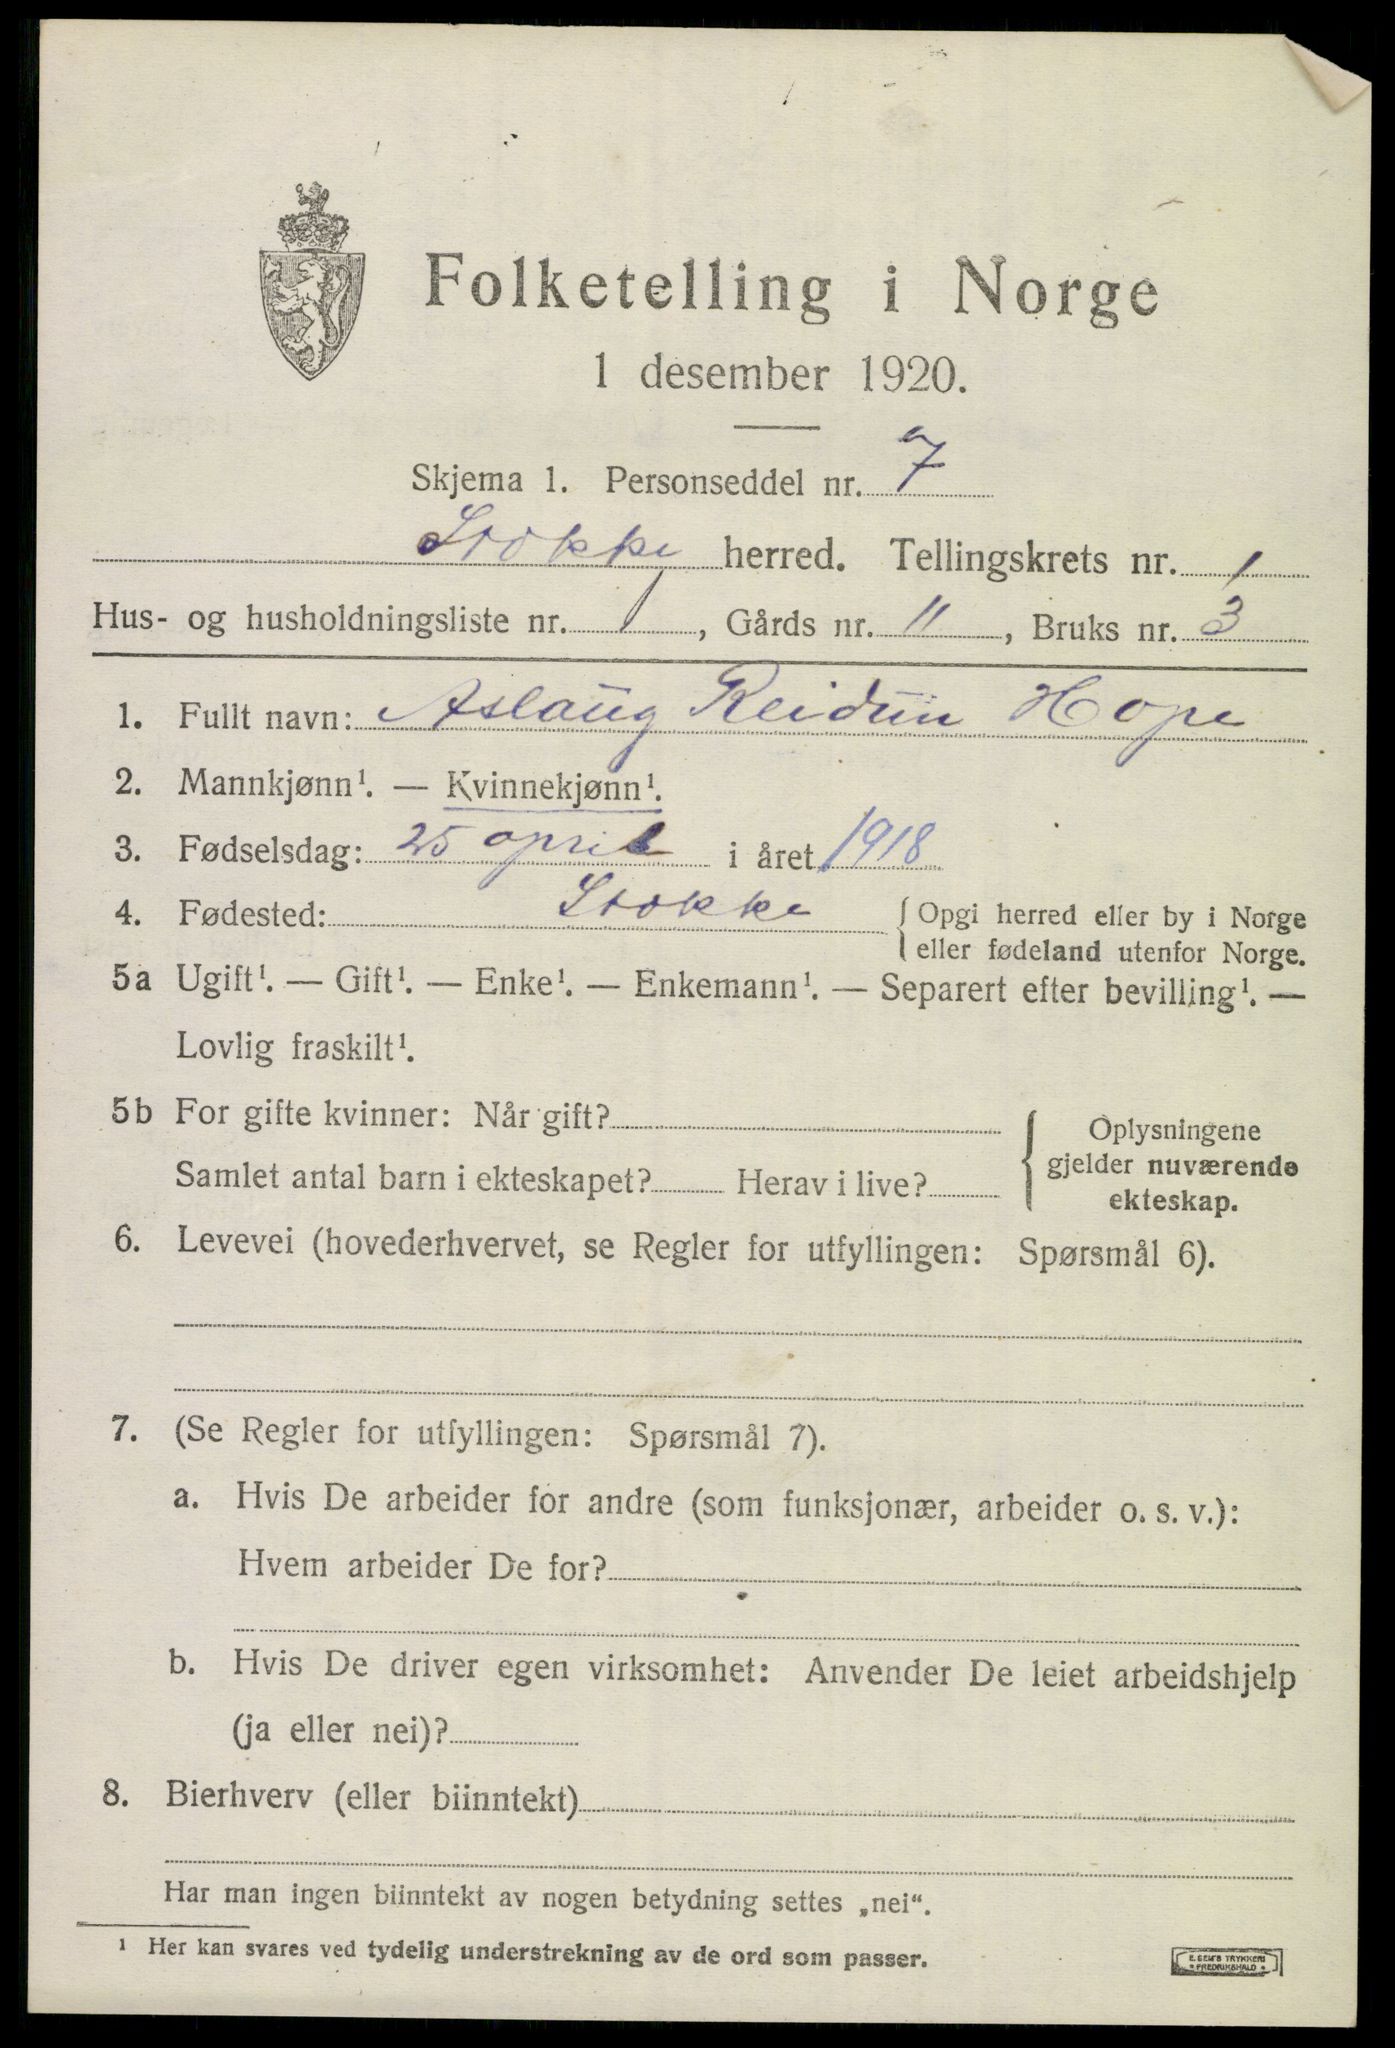 Folketelling i Norge
1 desember 1920.
Skjema 1. Personseddel nr. 7
Stokke herred. Tellingskrets nr. 1
Hus- og husholdningsliste nr. 1, Gårds nr. 11, Bruks nr. 3
1. Fullt navn: Aslaug Reidun Hope
2. Mannkjønn¹. — Kvinnekjønn¹.
3. Fødselsdag: 25 april i året 1918
4. Fødested: Stokke { Opgi herred eller by i Norge
eller fødeland utenfor Norge.
5a Ugift¹. — Gift¹. — Enke¹. — Enkemann¹. — Separert efter bevilling¹. —
Lovlig fraskilt¹.
5b For gifte kvinner: Når gift?
Samlet antal barn i ekteskapet? Herav i live?
Oplysningene
gjelder nuværende
ekteskap.
6. Levevei (hovederhvervet, se Regler for utfyllingen: Spørsmål 6).
7. (Se Regler for utfyllingen: Spørsmål 7).
a. Hvis De arbeider for andre (som funksjonær, arbeider o. s. v.):
Hvem arbeider De for?
b. Hvis De driver egen virksomhet: Anvender De leiet arbeidshjelp
(ja eller nei)?
8. Bierhverv (eller biinntekt)
Har man ingen biinntekt av nogen betydning settes „nei“.
¹ Her kan svares ved tydelig understrekning av de ord som passer.
E. SEM'S TRYKKERI
• FREDRIKSHALD •